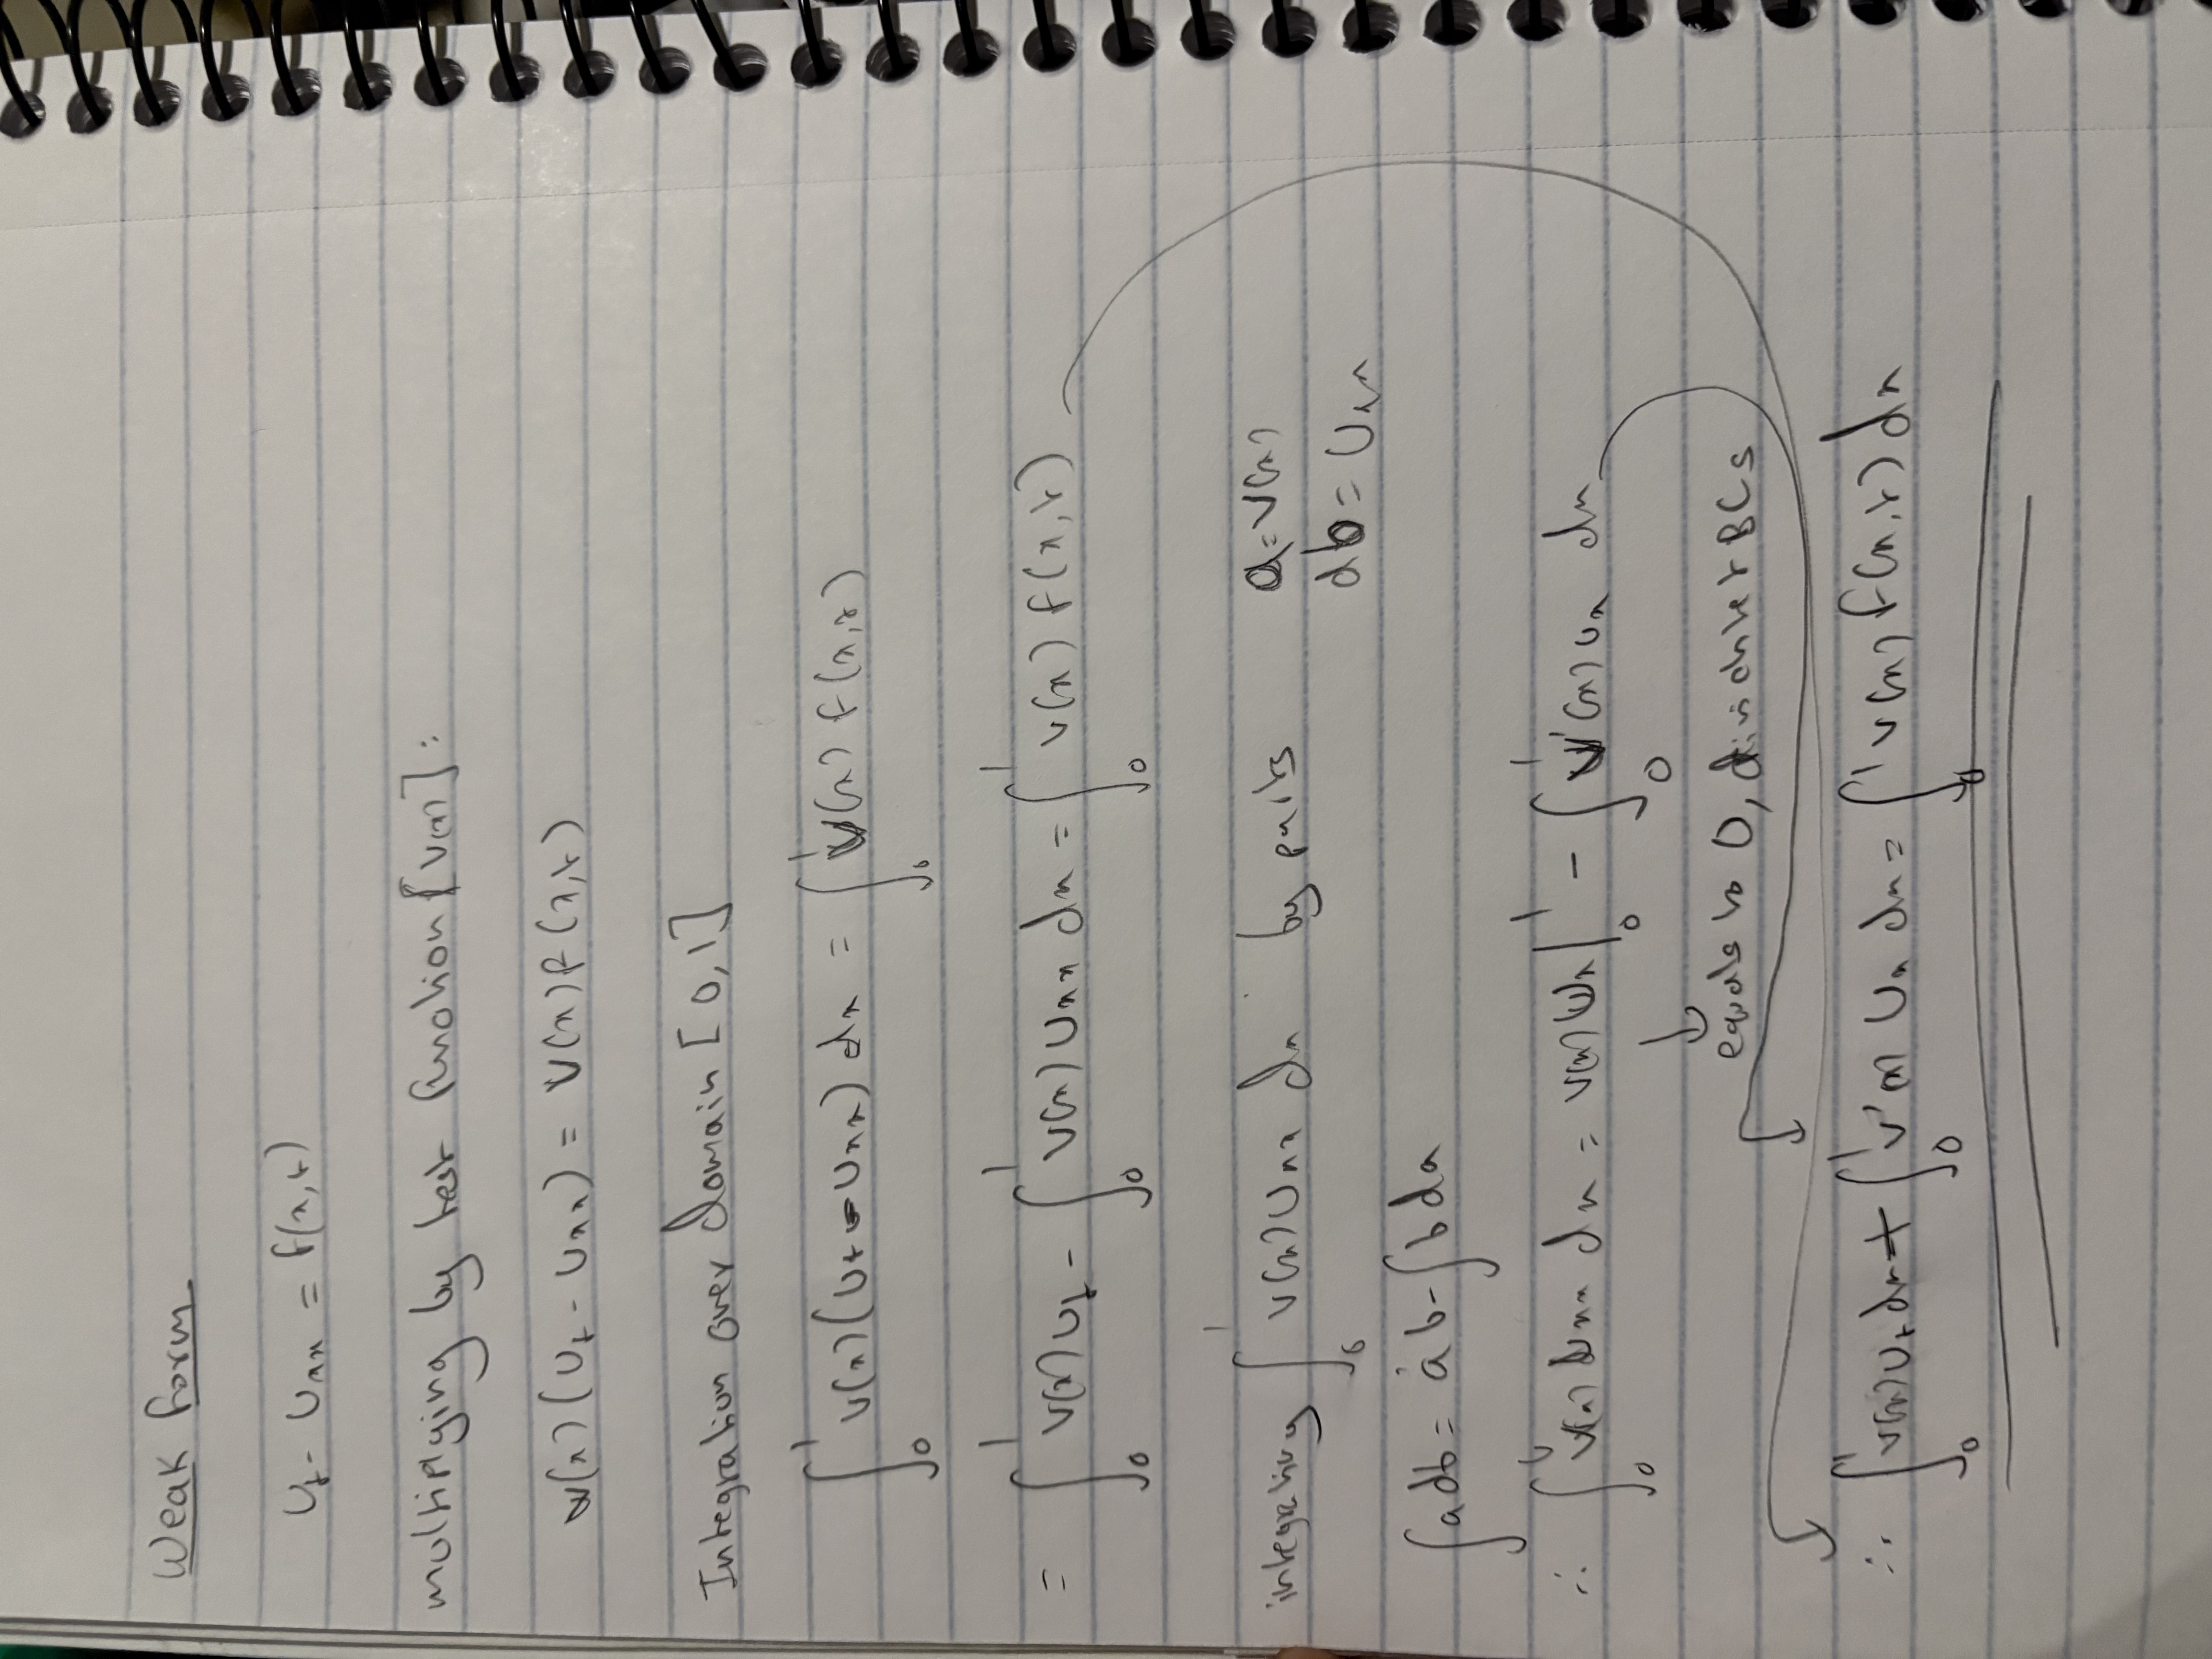 Weak form
u_t - u_xx = f(x,t)
multiplying by test function [v(x)]:
v(x)(u_t - u_xx) = v(x)f(x,t)
Integration over domain [0,1]
∫_0^1 v(x)(u_t - u_xx) dx = ∫_0^1 v(x) f(x,t)
= ∫_0^1 v(x)u_t - ∫_0^1 v(x)u_xx dx = ∫_0^1 v(x) f(x,t)
integrating ∫_0^1 v(x)u_xx dx by parts a=v(x)
db = u_xx
∫adb = ab-∫bda
∴ ∫_0^1 v(x)u_xx dx = v(x)u_x|_0^1 - ∫_0^1 v'(x)u_x dx
↓
equals to 0, dirichlet BCs
∴ ∫_0^1 v(x)u_t dx + ∫_0^1 v'(x) u_x dx = ∫_0^1 v(x) f(x,t) dx